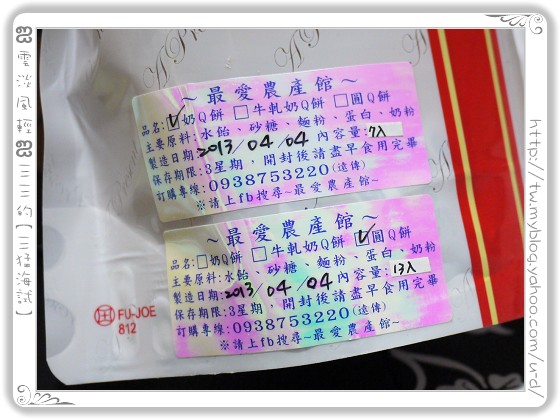 ~最愛農產館~
品名:☑奶Q餅 □牛軋奶Q餅 □圓Q餅
主要原料:水飴、砂糖、麵粉、蛋白、奶粉
製造日期:2013/04/04 內容量:7入
保存期限:3星期，開封後請盡早食用完畢
訂購專線:0938753220(遠傳)
※請上fb搜尋~最愛農產館~
~最愛農產館~
品名:□奶Q餅 □牛軋奶Q餅 ☑圓Q餅
主要原料:水飴、砂糖、麵粉、蛋白、奶粉
製造日期:2013/04/04 內容量:13入
保存期限:3星期，開封後請盡早食用完畢
訂購專線:0938753220(遠傳)
※請上fb搜尋~最愛農產館~
FU-JOE
812
雲淡風輕 三三的【三猛海試】
http://tw.myblog.yahoo.com/u-d/